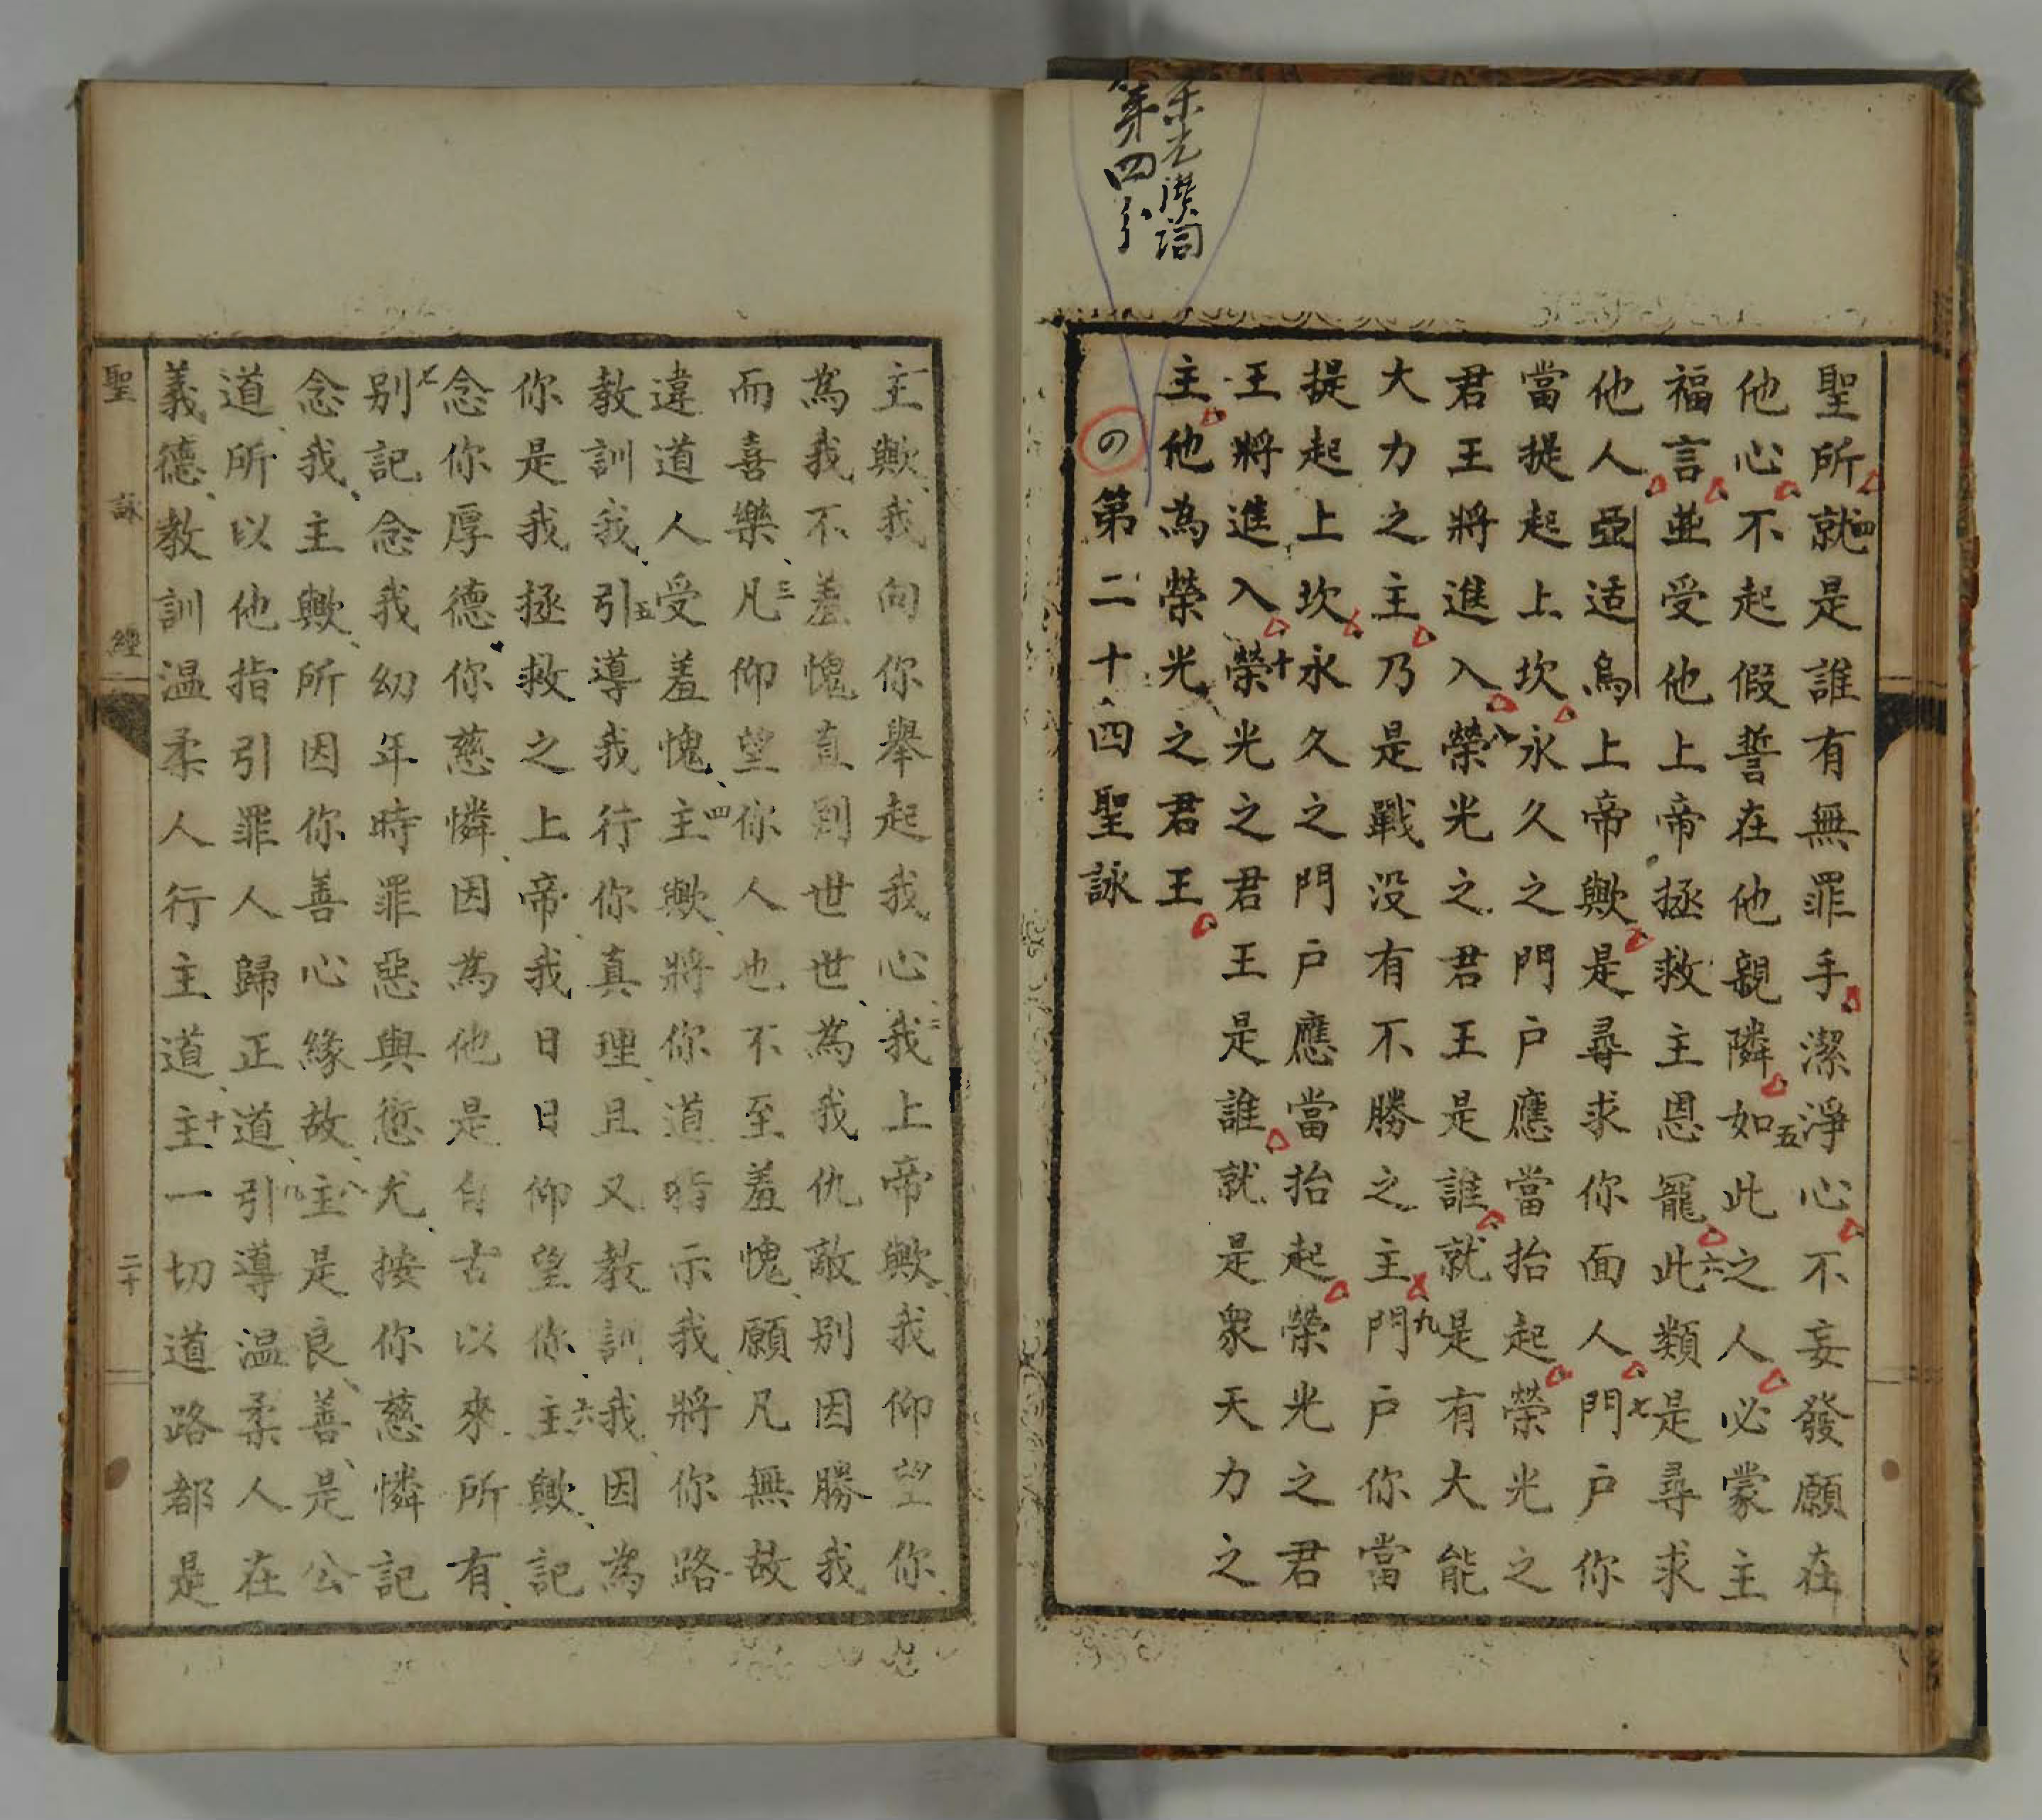 第四分
聖所就四是誰有無罪手潔淨心不妄發願在
他心不起假誓在他親隣如五此之人必蒙主
福言並受他上帝拯救主恩寵此六類是尋求
他人亞适烏上帝歟是尋求你面人門七戶你
當提起上坎永久之門戶應當抬起榮光之
君王將進入榮八光之君王是誰就是有大能
大力之主乃是戰没有不勝之主門九戶你當
提起上坎永久之門戶應當抬起榮光之君
王將進入榮十光之君王是誰就是衆天力之
主他為榮光之君王
の第二十四聖詠
主歟我向你舉起我心二我上帝歟我仰望你
為我不羞愧直到世世為我仇敵别因勝我
而喜樂三凡仰望你人也不至羞愧願凡無故
違道人受羞愧四主歟將你道指示我將你路
教訓我引五導我行你真理且又教訓我因為
你是我拯救之上帝我日日仰望你主六歟記
念你厚德你慈憐因為他是自古以來所有
别七記念我幼年時罪惡與愆尤按你慈憐記
念我主歟所因你善心緣故主八是良善是公
道所以他指引罪人歸正道引九導温柔人在
義德教訓温柔人行主道主十一切道路都是
聖詠經
二十